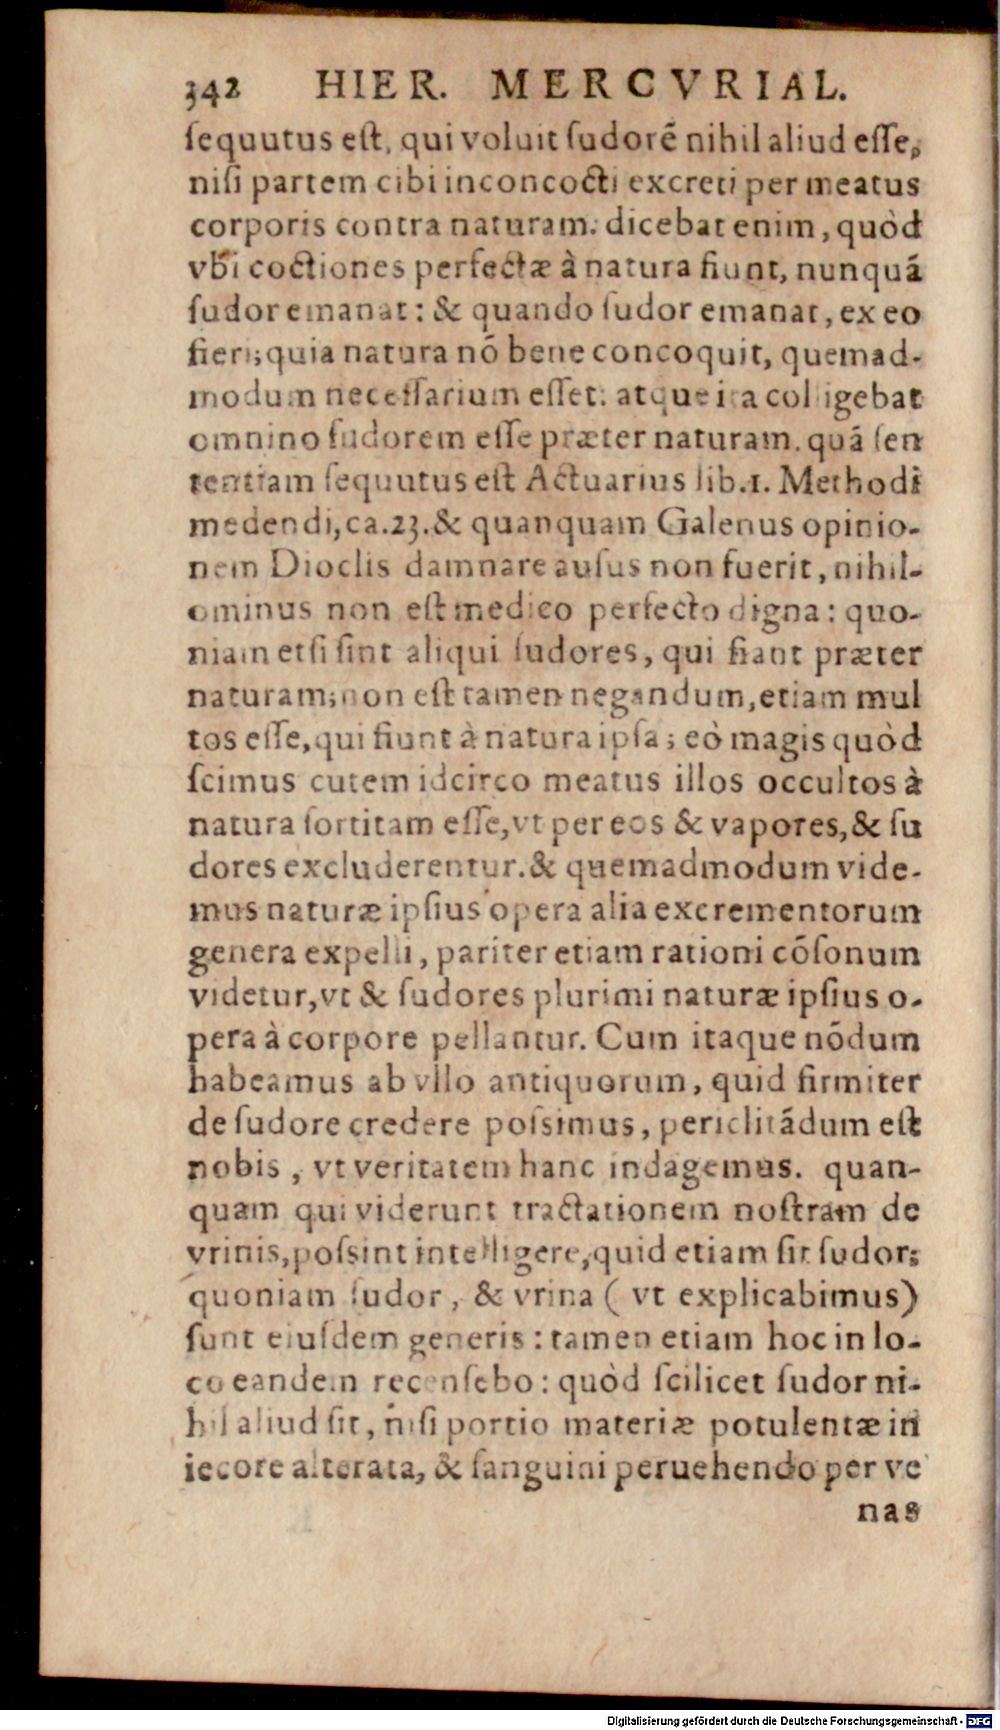 342 HIER. MERCVRIAL.
ſequutus eſt, qui voluit ſudorē nihil aliud eſſe,
niſi partem cibi inconcocti excreti per meatus
corporis contra naturam. dicebat enim, quòd
vbi coctiones perfectæ à natura fiunt, nunquā
ſudor emanat: & quando ſudor emanat, ex eo
fieri; quia natura nō bene concoquit, quemad-
modum neceſſarium eſſet: atque ita colligebat
omnino ſudorem eſſe præter naturam. quā ſen
tentiam ſequutus eſt Actuarius lib.1. Methodi
medendi, ca.23. & quanquam Galenus opinio-
nem Dioclis damnare auſus non fuerit, nihil-
ominus non eſt medico perfecto digna: quo-
niam etſi ſint aliqui ſudores, qui fiant præter
naturam; non eſt tamen negandum, etiam mul
tos eſſe, qui fiunt à natura ipſa; eò magis quòd
ſcimus cutem idcirco meatus illos occultos à
natura ſortitam eſſe, vt per eos & vapores, & ſu
dores excluderentur. & quemadmodum vide-
mus naturæ ipſius opera alia excrementorum
genera expelli, pariter etiam rationi cōſonum
videtur, vt & ſudores plurimi naturæ ipſius o-
pera à corpore pellantur. Cum itaque nōdum
habeamus ab vllo antiquorum, quid firmiter
de ſudore credere poſsimus, periclitādum eſt
nobis, vt veritatem hanc indagemus. quan-
quam qui viderunt tractationem noſtram de
vrinis, poſsint intelligere, quid etiam ſit ſudor;
quoniam ſudor, & vrina ( vt explicabimus)
ſunt eiuſdem generis: tamen etiam hoc in lo-
co eandem recenſebo: quòd ſcilicet ſudor ni-
hil aliud ſit, niſi portio materiæ potulentæ in
iecore alterata, & ſanguini peruehendo per ve
nas
Digitalisierung gefördert durch die Deutsche Forschungsgemeinschaft - DFG